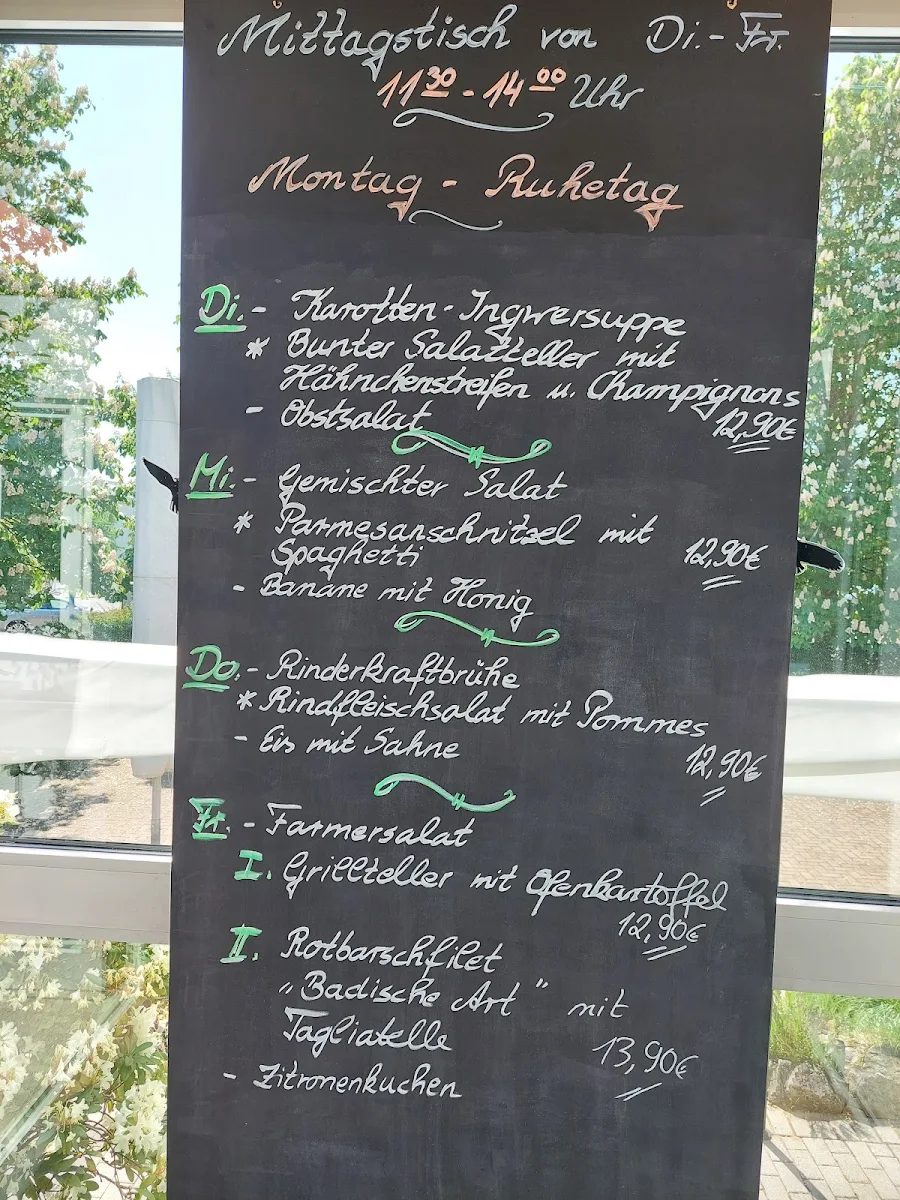 Mittagstisch von Di.- Fr.
11 30 - 14 00 Uhr
Montag - Ruhetag
Di.- Karotten-Ingwersuppe
* Bunter Salatteller mit
Hähnchenstreifen u. Champignons
- Obstsalat 12,90€
Mi.- Gemischter Salat
* Parmesanschnitzel mit
Spaghetti 12,90€
- Banane mit Honig
Do.- Rinderkraftbrühe
* Rindfleischsalat mit Pommes
- Eis mit Sahne 12,90€
Fr. - Farmersalat
I. Grillteller mit Ofenkartoffel
12,90€
II. Rotbarschfilet
"Badische Art" mit
Tagliatelle 13,90€
- Zitronenkuchen